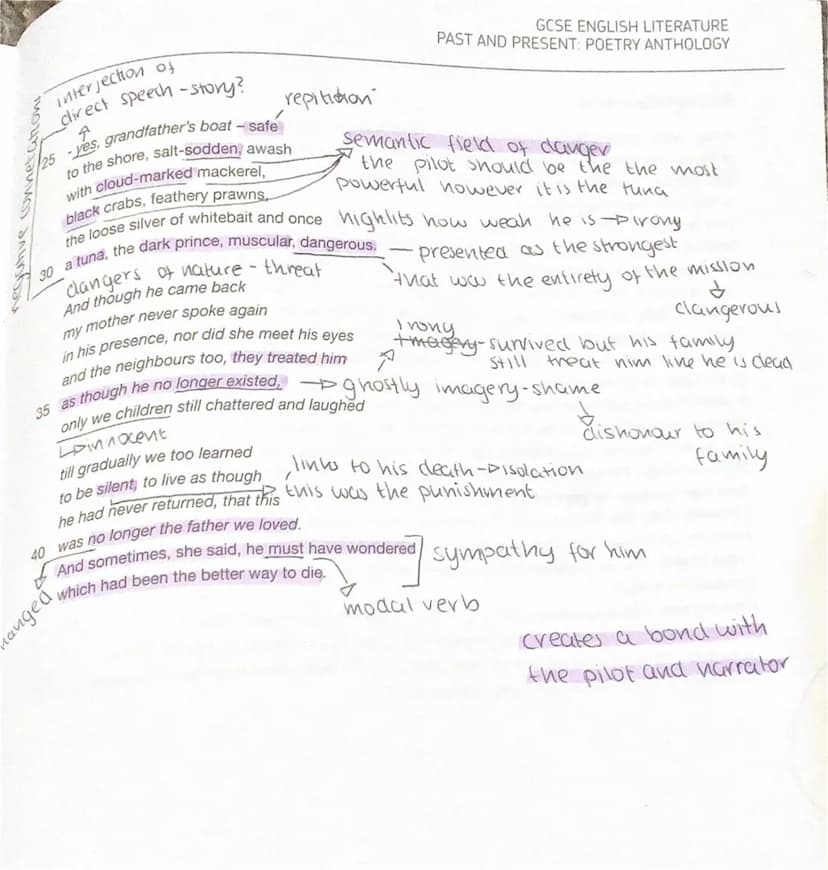 GCSE ENGLISH LITERATURE
PAST AND PRESENT: POETRY ANTHOLOGY
interjection of
direct speech - story?
repitition
negative connotation
25 - yes, grandfather's boat – safe
to the shore, salt-sodden, awash
with cloud-marked mackerel,
black crabs, feathery prawns,
the loose silver of whitebait and once
30 a tuna, the dark prince, muscular, dangerous.
semantic field of danger
the pilot should be the the most
powerful however it is the tuna
highlits how weak he is → irony
— presented as the strongest
that was the entirety of the mission
dangerous
dangers of nature - threat
And though he came back
my mother never spoke again
in his presence, nor did she meet his eyes
and the neighbours too, they treated him
35 as though he no longer existed,
only we children still chattered and laughed
irony
imagery - survived but his family
still treat him like he is dead
→ ghostly imagery - shame
dishonour to his
family
↳ innocent
till gradually we too learned
to be silent, to live as though
he had never returned, that this
40 was no longer the father we loved.
And sometimes, she said, he must have wondered
which had been the better way to die.
links to his death → isolation
this was the punishment
sympathy for him
modal verb
creates a bond with
the pilot and narrator